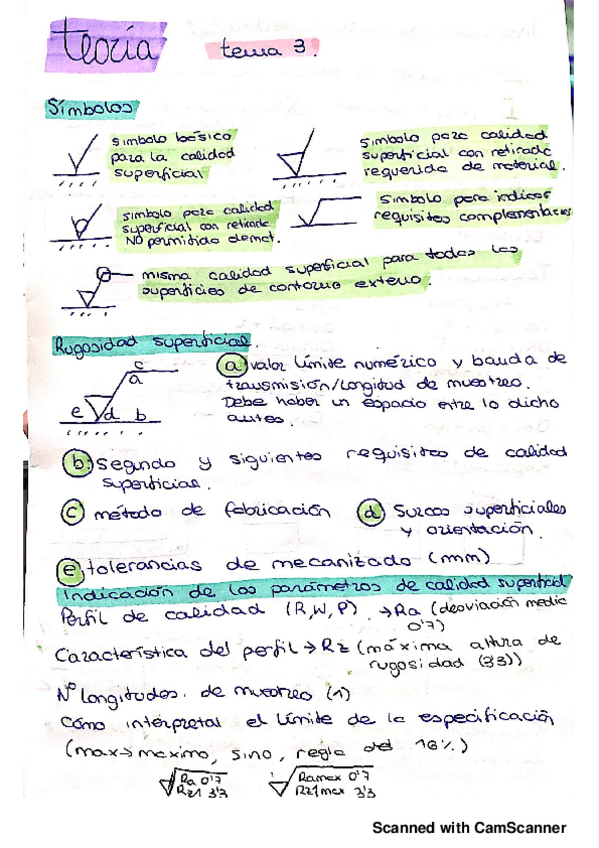 teoría tema 3.
Símbolos
símbolo básico
para la calidad
superficial
símbolo para calidad
superficial con retirada
requerida de material.
símbolo para calidad
superficial con retirada
NO permitida de mat.
Símbolo para indicar
requisitos complementarios
misma calidad superficial para todas las
superficies de contorno externo.
Rugosidad superficial.
c
a
e d b
a) valor límite numérico y banda de
transmisión/longitud de muestreo.
Debe haber un espacio entre lo dicho
antes.
b) segundo y siguientes requisitos de calidad
superficial.
c) método de fabricación d) Surcos superficiales
y orientación.
e) tolerancias de mecanizado (mm)
Indicación de los parámetros de calidad superficial
Perfil de calidad (R,W,P). → Ra (desviación media
0'7)
Característica del perfil → Rz (máxima altura de
rugosidad (3'3))
Nº longitudes. de muestreo (1)
Cómo interpretar el límite de la especificación
(max → maximo, sino, regla del 16%)
Ra 0'7
Rz1 3'3
Ramax 0'7
Rz1max 3'3
Scanned with CamScanner